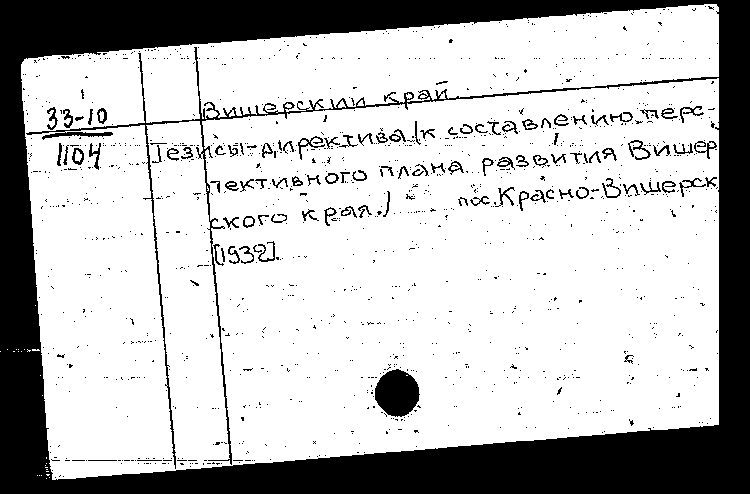 33-10
1104
Вишерский край
Тезисы-директивы /к составлению перс-
пективного плана развития Вишер
ского края./ пос. Красно-Вишерск
[1932].